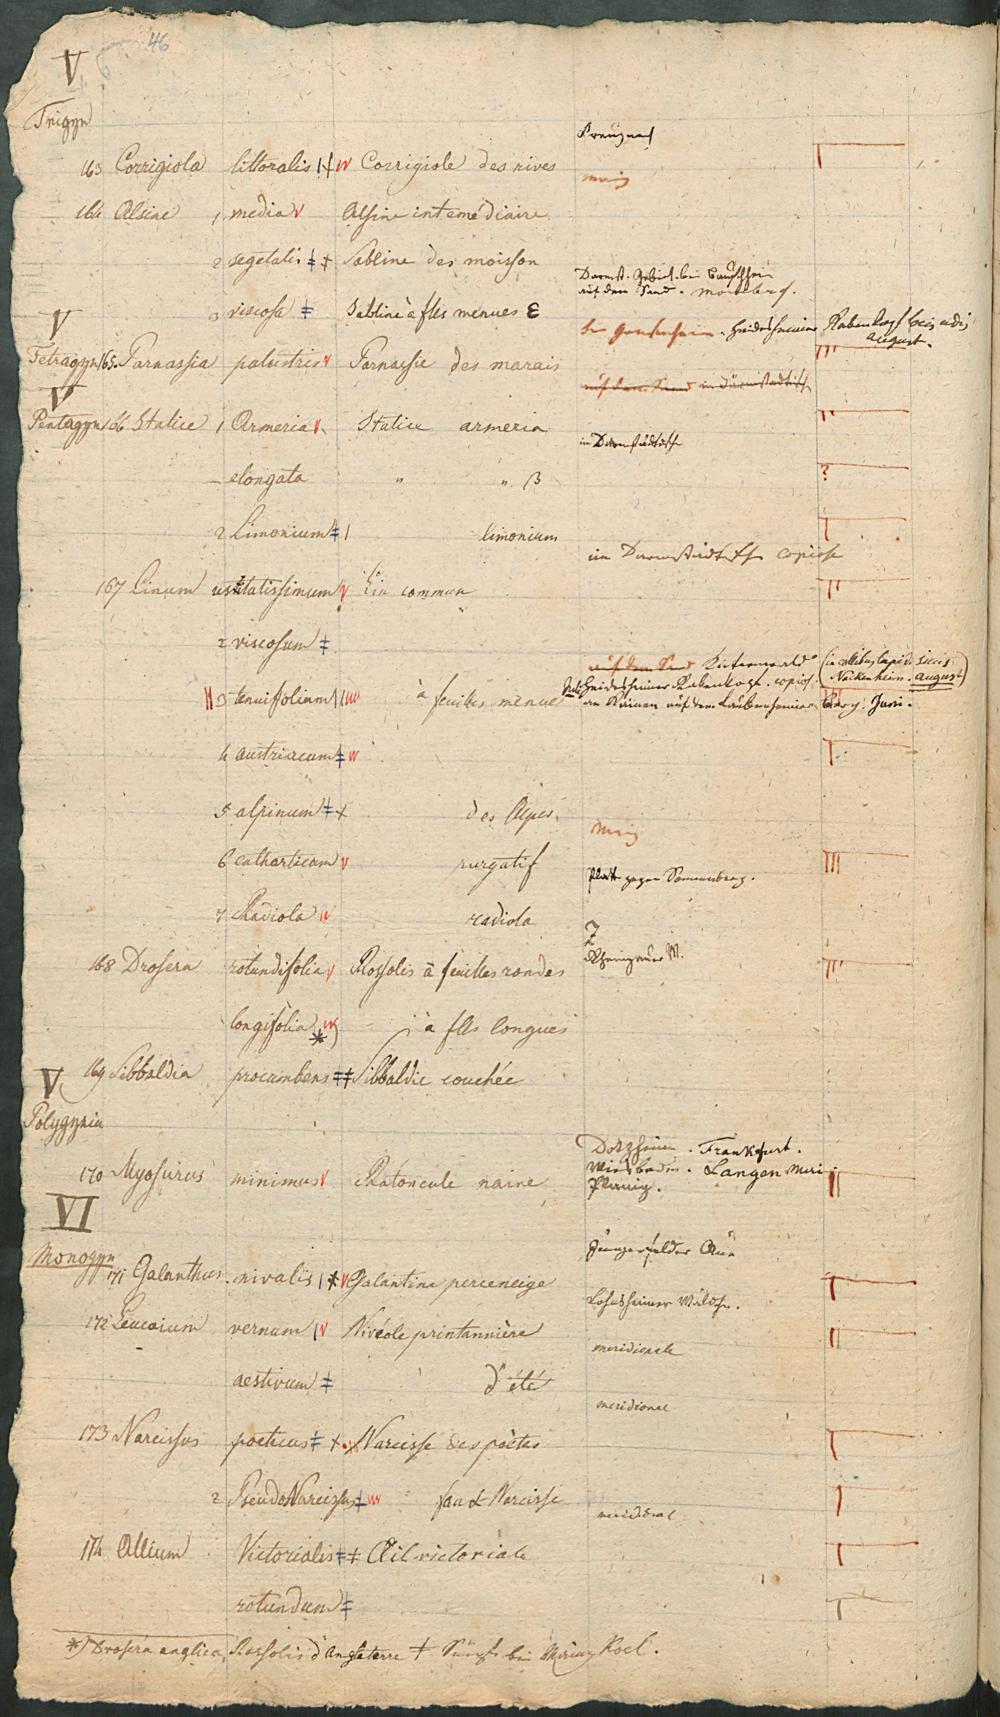 46
V
Trigyn
Kreuznach
163 Corrigiola littoralis Corrigiole des rives
164 Alsine 1 media Alsine intemédiaire
2 segetalis ‡ Sabline des moisson
Darmst. Gebiet bei
auf dem Sand.
3 viscosa ‡ Sabline à flles menues ε
V
bei Gonsenheim. Heidesheimer Rabenkopf
August.
Tetragyn 165. Parnassia palustris Parnassie des marais
auf dem Sand im Darmstädtisch
V
Pentagyn 166 Statice 1 Armeria Statice armeria
im Darmstädtische
– elongata " " β
?
2 Limonium ‡ limonium
im Darmstädtische copiose
167 Linum usitatissimum Lin commun
2 viscosum ‡
auf dem Sand
Nackenheim. August
Heidesheimer Rabenkopf. copios.
3 tenuifolium à feuilles menue
an Rainen auf dem Laubenheimer Berg. Juni.
4 austriacum ‡
5 alpinum ‡ des Alpes
6 catharticum purgatif
Platte gegen Sonnenberg.
7 Radiola radiola
168 Drosera rotundifolia Rossolis à feuilles rondes
longifolia *) à flles longues
169 Sibbaldia procumbens ‡ Sibbaldie couchée
V
Polygynia
Dotzheim. Frankfurt.
Wiesbaden. Langen
170 Myosurus minimus Ratoncule naine
VI
Monogyn
171 Galanthus nivalis * Galantine perceneige
172 Leucoium vernum Nivéole printannière
meridionale
aestivum ‡ d'été
meridional
173 Narcissus poeticus ‡ Narcisse des poètes
2 PseudoNarcissus ‡ faux Narcisse
meridional
174 Allium Victorialis ‡ Ail victoriale
rotundum ‡
*) Drosera anglica, Rossolis d'Angleterre † Koel.